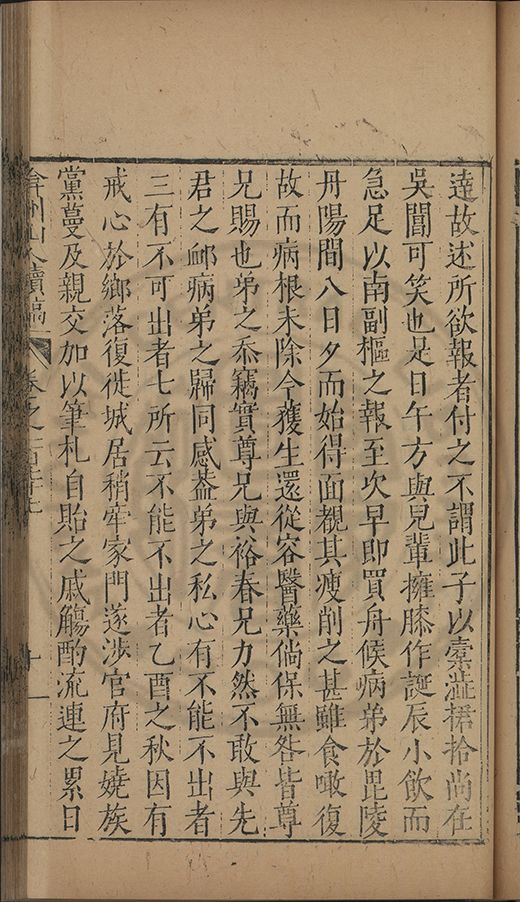 達故述所欲報者付之不謂此子以橐澁捃拾尚在
吳閶可笑也是日午方與兒輩擁膝作誕辰小飲而
急足以南副樞之報至次早即買舟候病弟於毘陵
丹陽間八日夕而始得面覩其瘦削之甚雖食噉復
故而病根未除今獲生還從容醫藥倘保無咎皆尊
兄賜也弟之忝竊實尊兄與裕春兄力然不敢與先
君之衈病弟之歸同感葢弟之私心有不能不出者
三有不可出者七所云不能不出者乙酉之秋因有
戒心於鄉落復徙城居稍牢家門遂涉官府見嬈族
黨蔓及親交加以筆札自貽之戚觴酌流連之累日
弇州山人續稿 卷之一百七十 十一